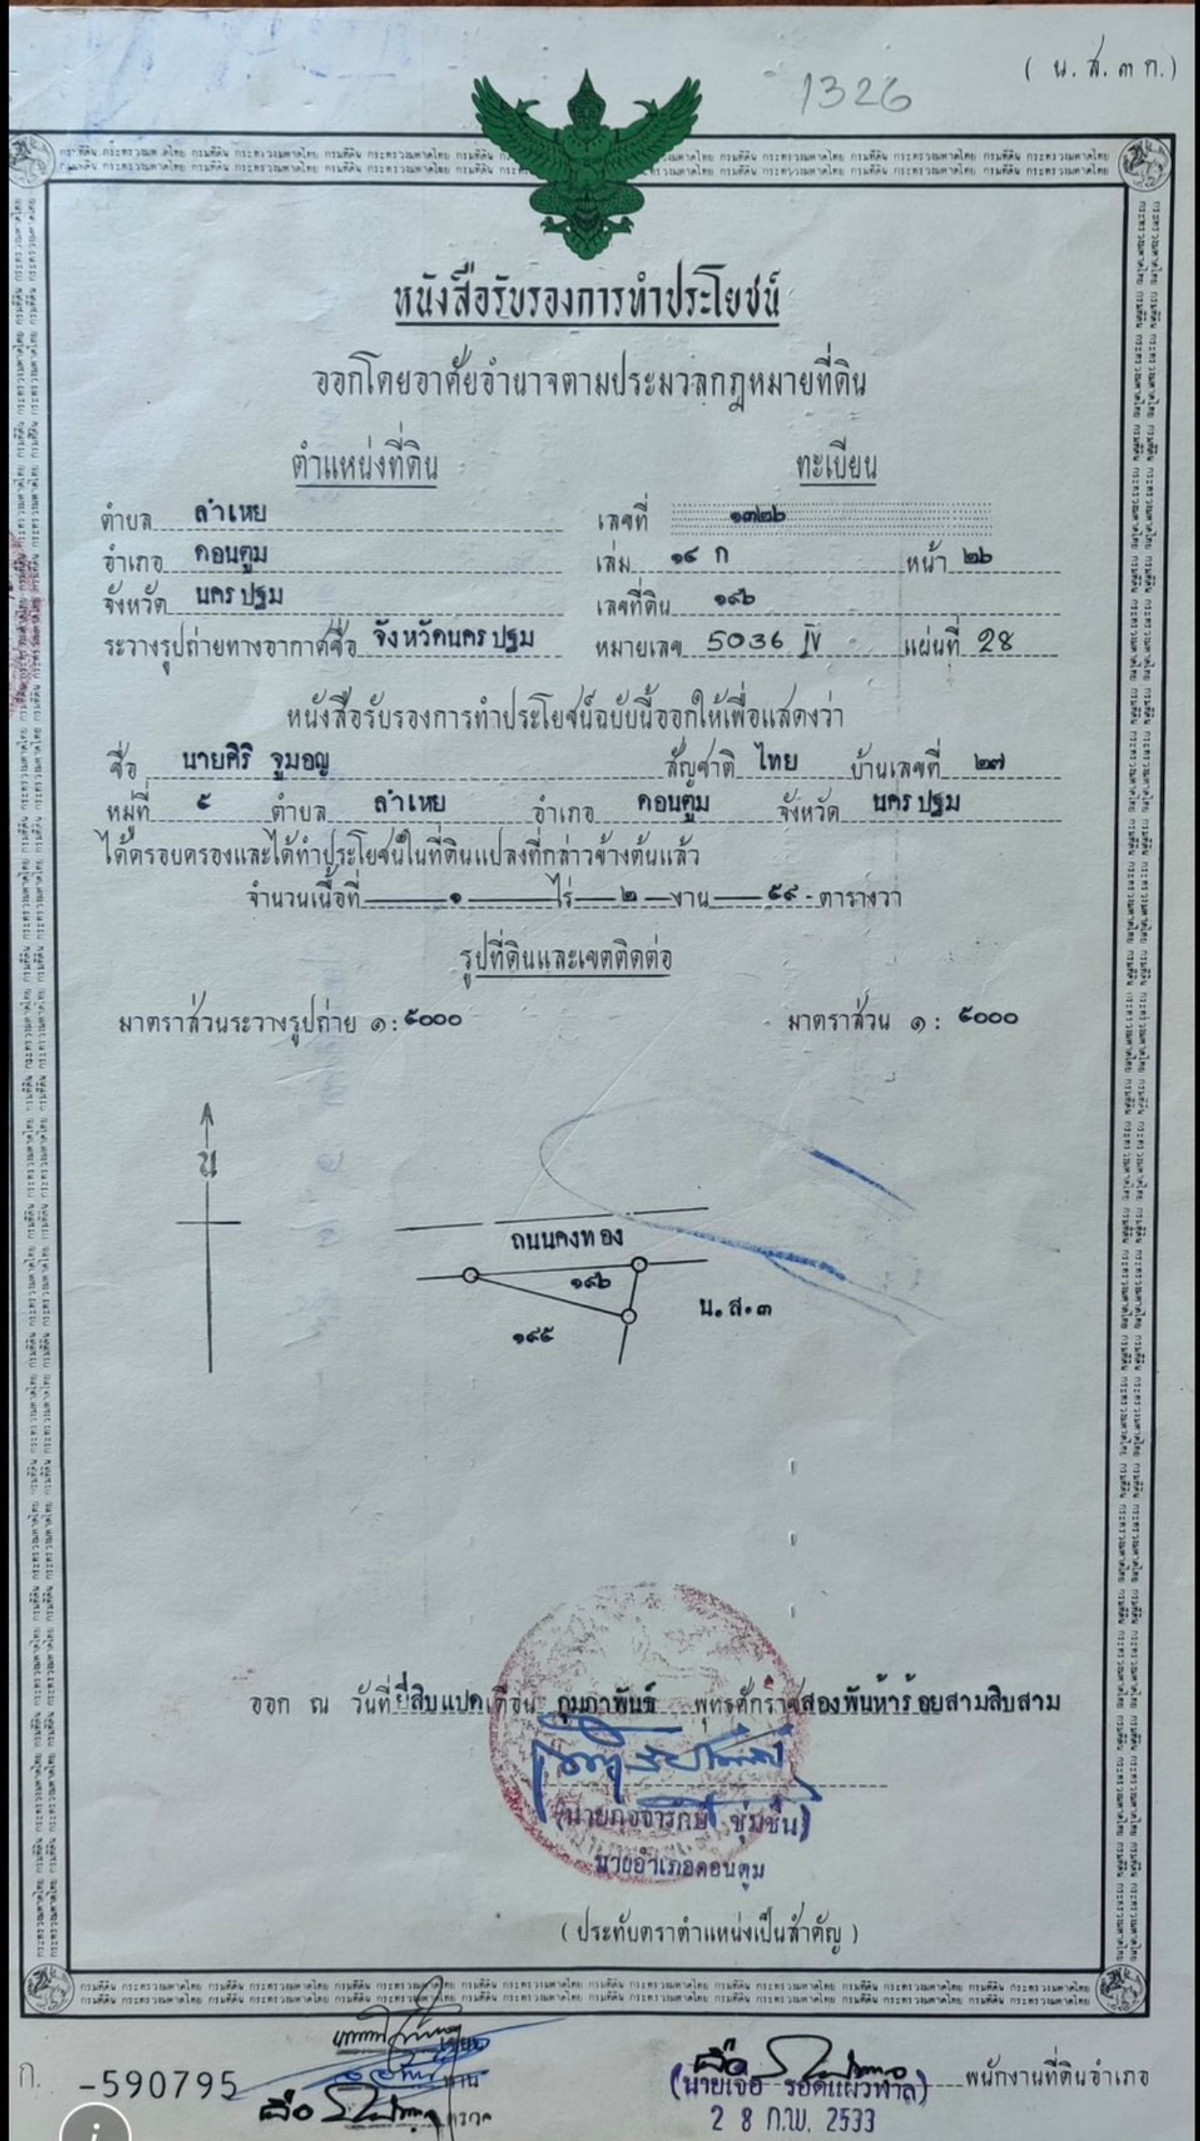 ( น.ส.๓ ก.)
1326
หนังสือรับรองการทำประโยชน์
ออกโดยอาศัยอำนาจตามประมวลกฎหมายที่ดิน
ตำแหน่งที่ดิน ทะเบียน
ตำบล ลำเหย เลขที่ ๑๓๒๖
อำเภอ ดอนตูม เล่ม ๑๔ ก หน้า ๒๖
จังหวัด นครปฐม เลขที่ดิน ๑๙๖
ระวางรูปถ่ายทางอากาศชื่อ จังหวัดนครปฐม หมายเลข 5036 IV แผ่นที่ 28
หนังสือรับรองการทำประโยชน์ฉบับนี้ออกให้เพื่อแสดงว่า
ชื่อ นายศิริ จูมอญ สัญชาติ ไทย บ้านเลขที่ ๒๗
หมู่ที่ ๕ ตำบล ลำเหย อำเภอ ดอนตูม จังหวัด นครปฐม
ได้ครอบครองและได้ทำประโยชน์ในที่ดินแปลงที่กล่าวข้างต้นแล้ว
จำนวนเนื้อที่ ๑ ไร่ ๒ งาน ๕๙ ตารางวา
รูปที่ดินและเขตติดต่อ
มาตราส่วนระวางรูปถ่าย ๑ : ๕๐๐๐ มาตราส่วน ๑ : ๕๐๐๐
น
ถนนคงทอง
๑๙๖
น.ส.๓
๑๙๕
ออก ณ วันที่ยี่สิบแปดเดือน กุมภาพันธ์ พุทธศักราชสองพันห้าร้อยสามสิบสาม
ชุ่มชื่น)
นายอำเภอดอนตูม
( ประทับตราตำแหน่งเป็นสำคัญ )
ก. -590795
ทาน
ตรวจ
(นายเจือ รอดแผ้วพาล) พนักงานที่ดินอำเภอ
2 8 ก.พ. 2533
กรมที่ดิน กระทรวงมหาดไทย